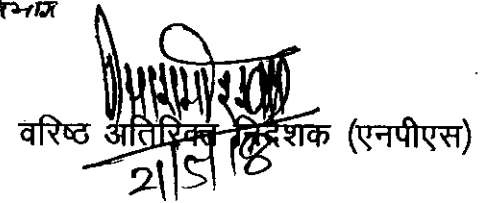 वरिष्ठ अतिरिक्त निदेशक (एनपीएस)
21/5/18